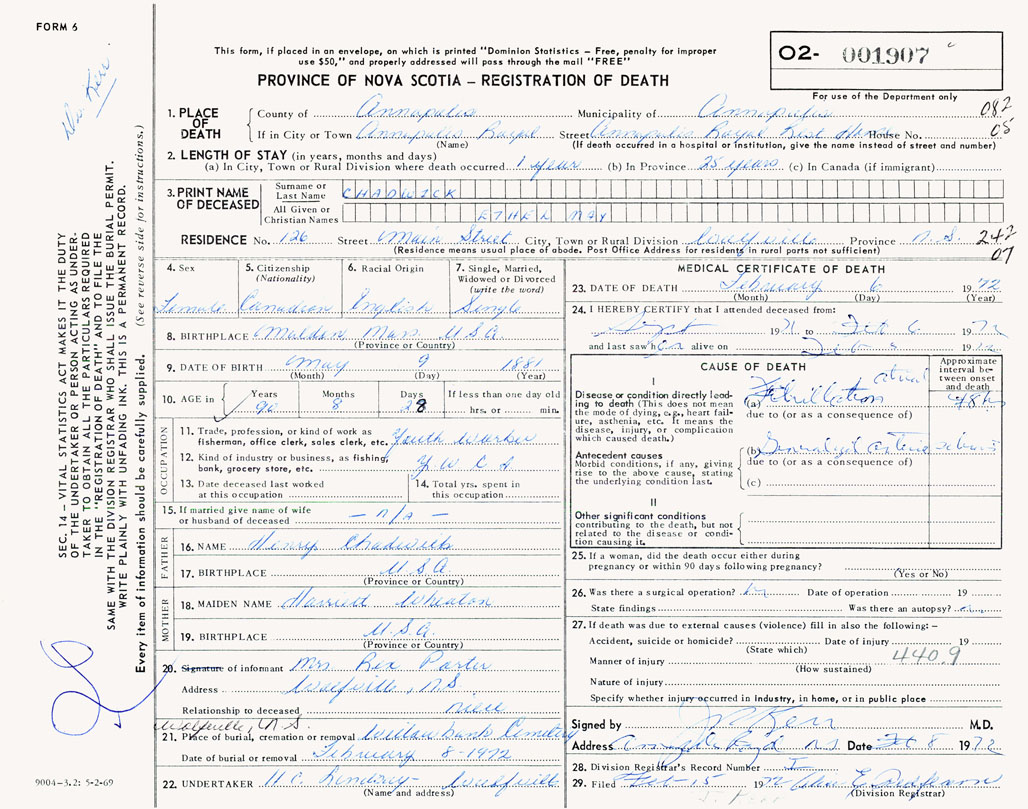 FORM 6
This form, if placed in an envelope, on which is printed "Dominion Statistics – Free, penalty for improper
use $50," and properly addressed will pass through the mail "FREE"
PROVINCE OF NOVA SCOTIA – REGISTRATION OF DEATH
02- 001907
For use of the Department only
Dr. Kerr
SEC. 14 – VITAL STATISTICS ACT MAKES IT THE DUTY
OF THE UNDERTAKER OR PERSON ACTING AS UNDER-
TAKER TO OBTAIN ALL THE PARTICULARS REQUIRED
IN THE "REGISTRATION OF DEATH" AND TO FILE THE
SAME WITH THE DIVISION REGISTRAR WHO SHALL ISSUE THE BURIAL PERMIT.
WRITE PLAINLY WITH UNFADING INK. THIS IS A PERMANENT RECORD.
Every item of information should be carefully supplied. (See reverse side for instructions.)
1. PLACE OF DEATH
County of Annapolis Municipality of Annapolis 082
If in City or Town Annapolis Royal Street Annapolis Royal Rest Home House No. 05
(Name) (If death occurred in a hospital or institution, give the name instead of street and number)
2. LENGTH OF STAY (in years, months and days)
(a) In City, Town or Rural Division where death occurred 1 year (b) In Province 25 years (c) In Canada (if immigrant)
3. PRINT NAME OF DECEASED
Surname or Last Name CHADWICK
All Given or Christian Names ETHEL MAY
RESIDENCE No. 126 Street Main Street City, Town or Rural Division Wolfville Province N.S. 242
(Residence means usual place of abode. Post Office Address for residents in rural parts not sufficient) 07
4. Sex 5. Citizenship (Nationality) 6. Racial Origin 7. Single, Married, Widowed or Divorced (write the word)
Female Canadian English Single
8. BIRTHPLACE Malden Mass USA
(Province or Country)
9. DATE OF BIRTH May 9 1881
(Month) (Day) (Year)
10. AGE in Years Months Days If less than one day old
90 8 28 hrs. or min.
OCCUPATION
11. Trade, profession, or kind of work as
fisherman, office clerk, sales clerk, etc. Youth Worker
12. Kind of industry or business, as fishing,
bank, grocery store, etc. YWCA
13. Date deceased last worked at this occupation 14. Total yrs. spent in this occupation
15. If married give name of wife
or husband of deceased – n/a –
FATHER
16. NAME Henry Chadwick
17. BIRTHPLACE U.S.A.
(Province or Country)
MOTHER
18. MAIDEN NAME Harriett Wheaton
19. BIRTHPLACE U.S.A.
(Province or Country)
20. Signature of informant Mrs. Rex Porter
Address Wolfville, N.S.
Relationship to deceased niece
Wolfville, N.S.
21. Place of burial, cremation or removal Willow Bank Cemetery
Date of burial or removal February 8-1972
22. UNDERTAKER Wolfville
(Name and address)
9004-3.2: 5-2-69
MEDICAL CERTIFICATE OF DEATH
23. DATE OF DEATH February 6 1972
(Month) (Day) (Year)
24. I HEREBY CERTIFY that I attended deceased from:
Sept 1971 to Feb 6 1972
and last saw her alive on Feb 6 1972
CAUSE OF DEATH
Approximate interval between onset and death
I
Disease or condition directly lead-
ing to death (This does not mean
the mode of dying, e.g., heart fail-
ure, asthenia, etc. It means the
disease, injury, or complication
which caused death.)
(a) Fibrillation atrial 48 hrs
due to (or as a consequence of)
Antecedent causes
Morbid conditions, if any, giving
rise to the above cause, stating
the underlying condition last.
(b) Generalized arteriosclerosis
due to (or as a consequence of)
(c)
II
Other significant conditions
contributing to the death, but not
related to the disease or condi-
tion causing it.
25. If a woman, did the death occur either during
pregnancy or within 90 days following pregnancy?
(Yes or No)
26. Was there a surgical operation? no Date of operation 19
State findings Was there an autopsy?
27. If death was due to external causes (violence) fill in also the following: –
Accident, suicide or homicide? Date of injury 19
(State which)
Manner of injury 440.9
(How sustained)
Nature of injury
Specify whether injury occurred in industry, in home, or in public place
Signed by Kerr M.D.
Address Annapolis Royal NS Date Feb 8 1972
28. Division Registrar's Record Number
29. Filed Feb-15 1972
(Division Registrar)